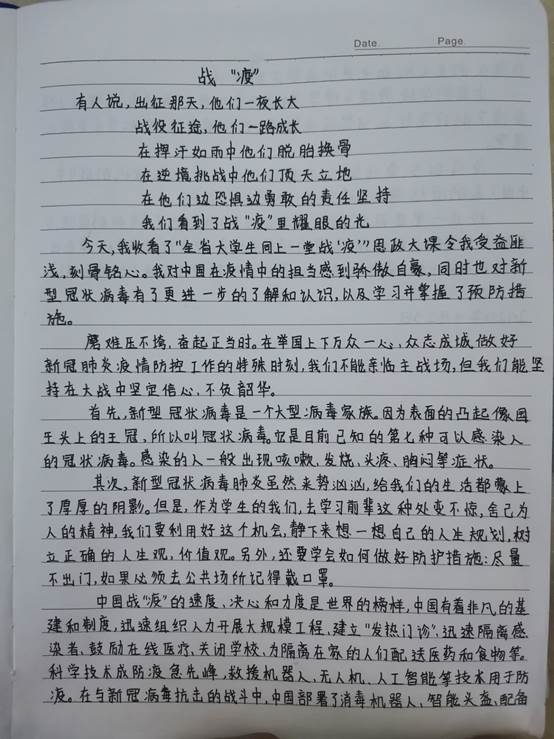 Date. Page.
战“疫”
有人说,出征那天,他们一夜长大
战役征途,他们一路成长
在挥汗如雨中他们脱胎换骨
在逆境挑战中他们顶天立地
在他们边恐惧边勇敢的责任坚持
我们看到了战“疫”里耀眼的光
今天,我收看了“全省大学生同上一堂战‘疫’”思政大课令我受益匪
浅,刻骨铭心。我对中国在疫情中的担当感到骄傲自豪,同时也对新
型冠状病毒有了更进一步的了解和认识,以及学习并掌握了预防措
施。
磨难压不垮,奋起正当时。在举国上下万众一心、众志成城做好
新冠肺炎疫情防控工作的特殊时刻,我们不能亲临主战场,但我们能坚
持在大战中坚定信心、不负韶华。
首先,新型冠状病毒是一个大型病毒家族。因为表面的凸起像国
王头上的王冠,所以叫冠状病毒。它是目前已知的第七种可以感染人
的冠状病毒。感染的人一般出现咳嗽、发烧、头疼、胸闷等症状。
其次,新型冠状病毒肺炎虽然来势汹汹,给我们的生活都蒙上
了厚厚的阴影。但是,作为学生的我们,去学习前辈这种处变不惊,舍己为
人的精神,我们要利用好这个机会,静下来想一想自己的人生规划,树
立正确的人生观,价值观。另外,还要学会如何做好防护措施:尽量
不出门,如果必须去公共场所记得戴口罩。
中国战“疫”的速度、决心和力度是世界的榜样,中国有着非凡的基
建和制度,迅速组织人力开展大规模工程,建立“发热门诊”,迅速隔离感
染者、鼓励在线医疗、关闭学校、为隔离在家的人们配送医药和食物等。
科学技术成防疫急先峰,救援机器人、无人机、人工智能等技术用于防
疫。在与新冠病毒抗击的战斗中,中国部署了消毒机器人、智能头盔、配备